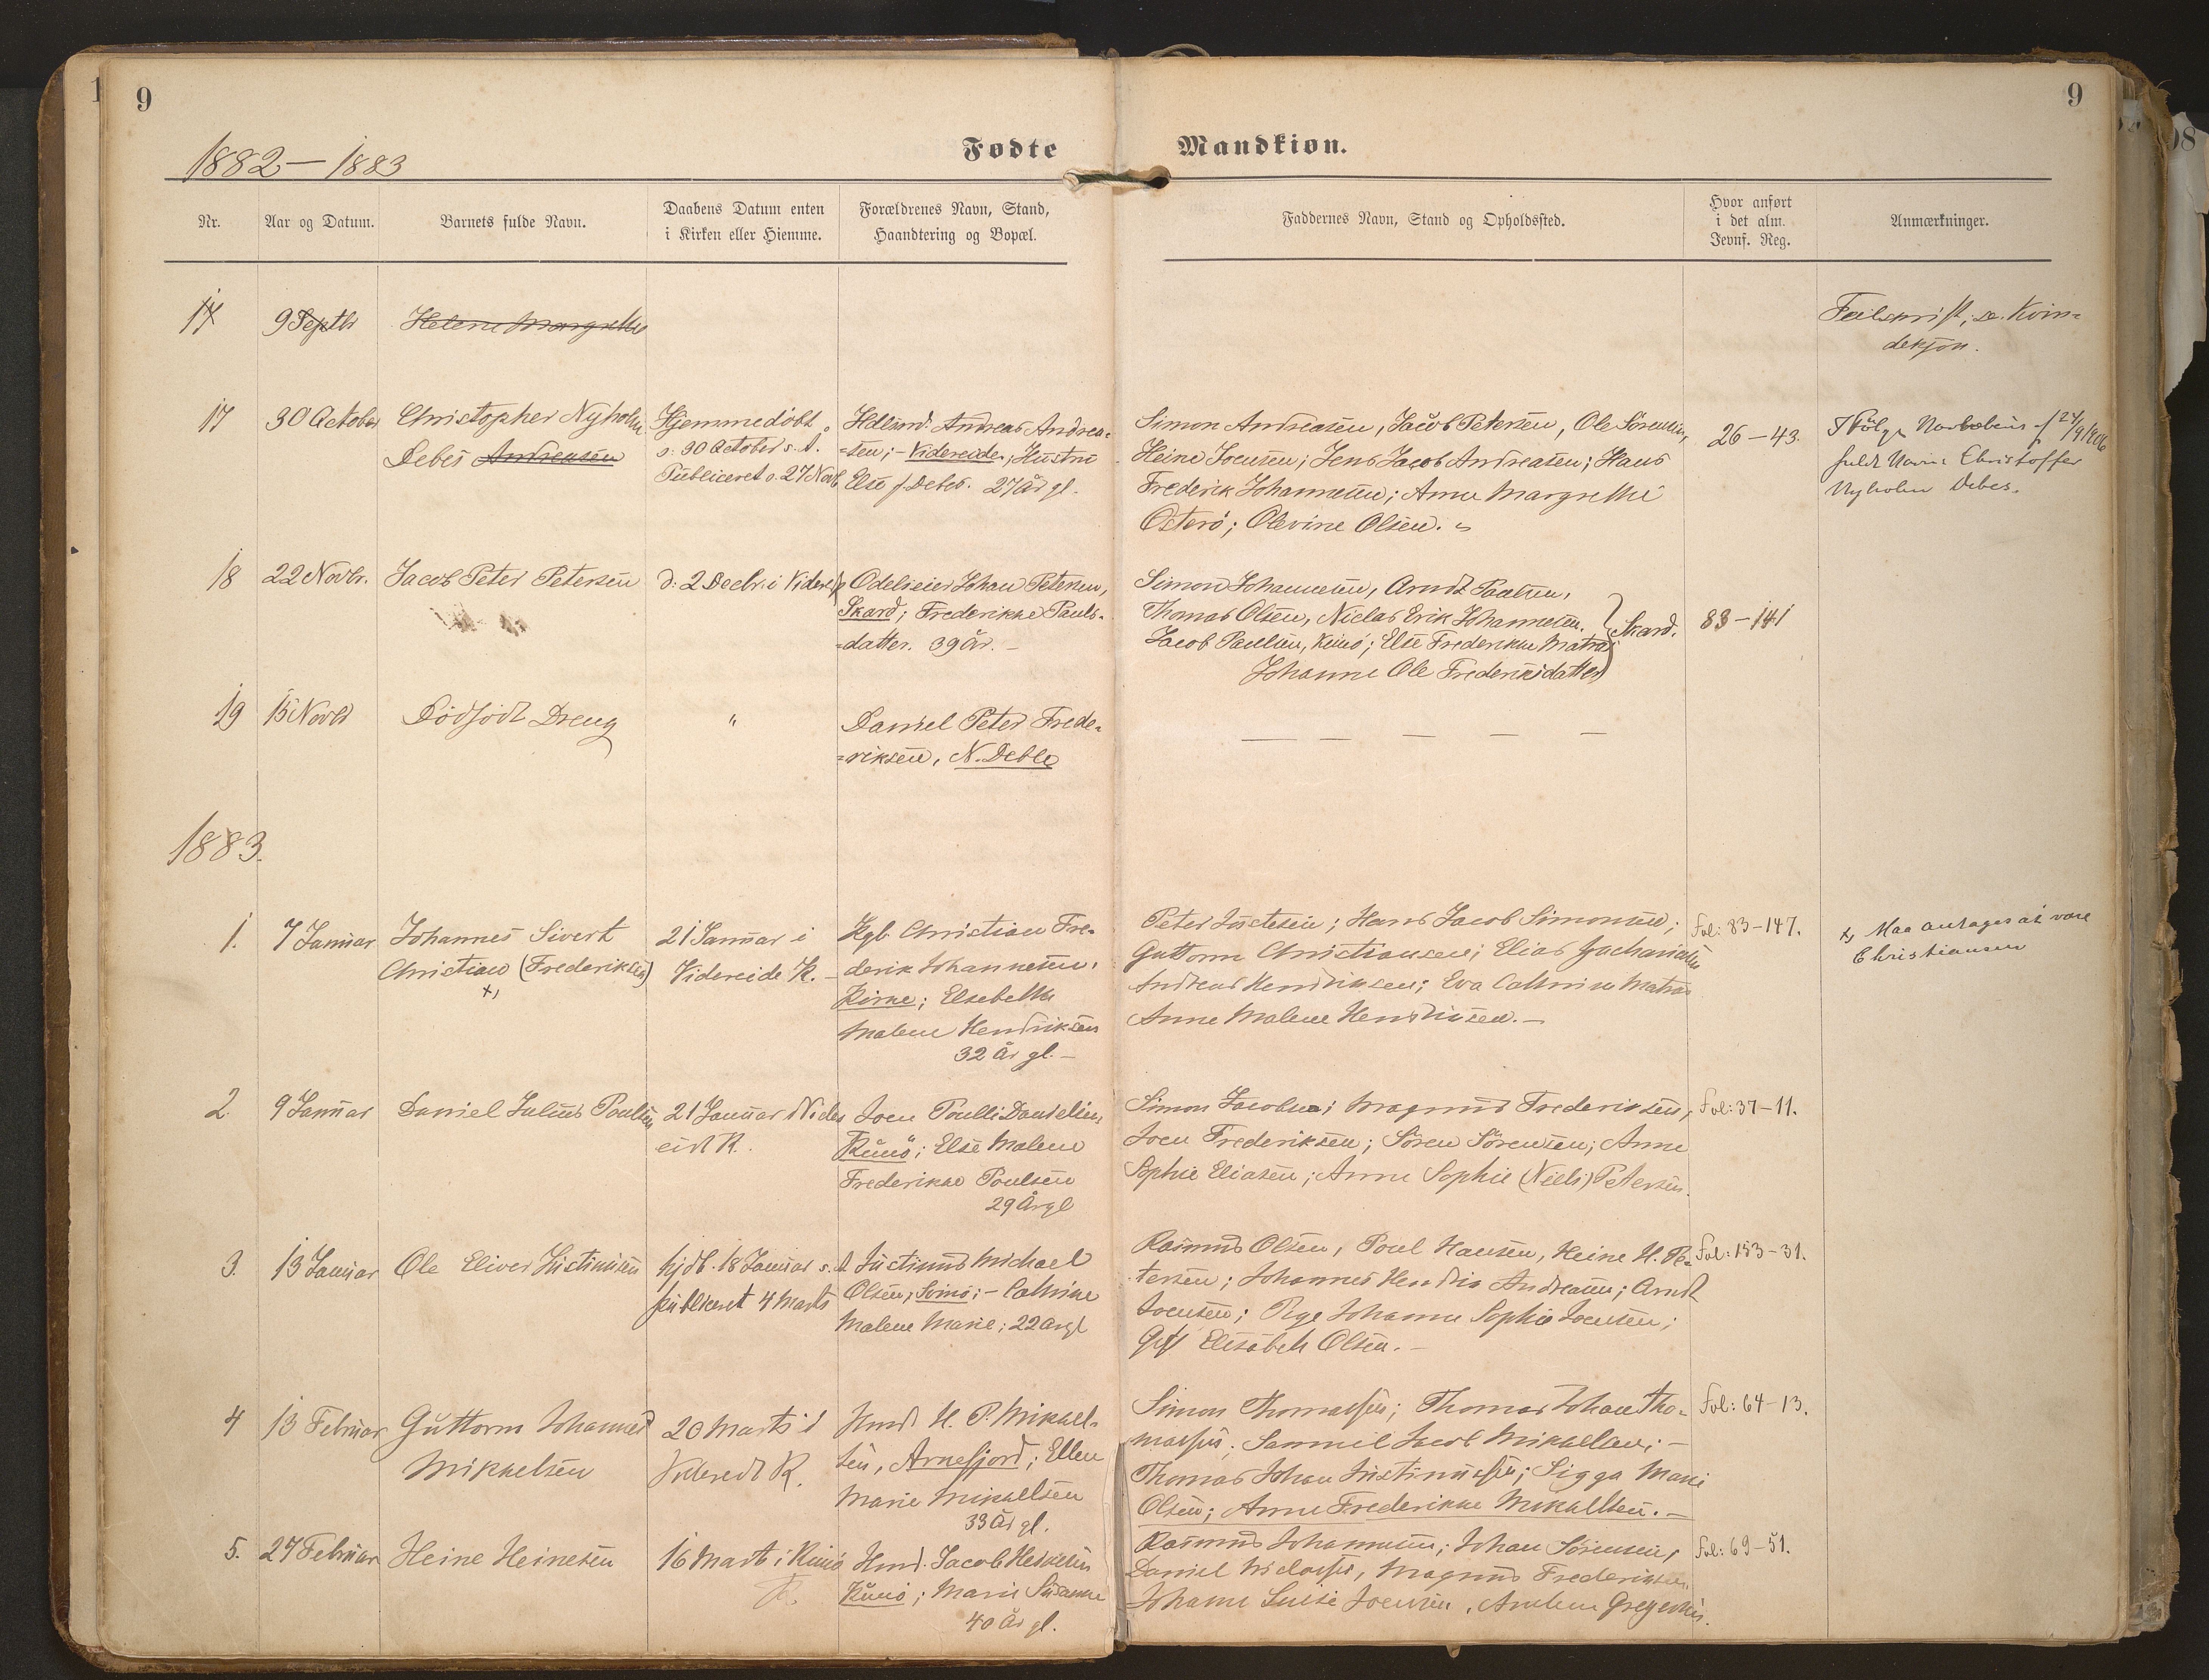 9
9
1882–1883
Fødte
Mandkiøn.
Nr.
Aar og Datum.
Barnets fulde Navn.
Daabens Datum enten
i Kirken eller Hiemme.
Forældrenes Navn, Stand,
Haandtering og Bopæl.
Faddernes Navn, Stand og Opholdssted.
Hvor anført
i det alm.
Jevnf. Reg.
Anmærkninger.
17
9 Septbr
Helene Margrethe
Feilskrift, se Kvin=
dekjøn.
17
30 October
Christopher Nyholm
Debes Andreasen
Hjemmedøbt
d. 30 October s. A.
Publiceret d. 27 Novb.
Hdlsmd. Andreas Andrea=
=sen; – Videreide; Hustru
Else f. Debes. 27 År gl.
Simon Andreasen, Jacob Petersen, Ole Sörensen,
Heine Joensen; Jens Jacob Andreasen; Hans
Frederik Johannesen; Anne Margrethe
Osterö; Olevine Olsen.
26–43.
Ifölge Navnebevis af 24/9 1906
fuldt Navn: Christoffer
Nyholm Debes.
18
22 Novbr.
Jacob Peter Petersen
d: 2 Decbr. i Videreide
Odelseier Johan Petersen,
Skard; Frederikke Pauls=
=datter. 39 År. –
Simon Johannesen, Arndt Paulsen,
Thomas Olsen, Niclas Erik Johannesen.
Jacob Paulsen, Kunö; Else Frederikke Matras
Johanne Ole Frederiksdatter
Skard.
83–141
19
15 Novbr
Dödfödt Dreng
"
Daniel Peter Frede=
=riksen, N. Deble
— — — — —
1883.
1.
7 Januar
Johannes Sivert
Christian (Frederiksen)
x)
21 Januar i
Videreide K. –
Kgb. Christian Fre=
derik Johannesen,
Kirke; Elsebeth
Malene Hendriksen
32 År gl. –
Peter Justesen; Hans Jacob Simonsen;
Guttorm Christiansen; Elias Zachariasen
Andreas Hendriksen; Eva Cathrine Matras
Anne Malene Hendriksen. –
Fol: 83–147.
x) Maa antages at være
Christiansen
2.
9 Januar
Daniel Julius Poulsen
21 Januar i Vider
eide K.
Joen Poul Danielsen,
Kunö; Else Malene
Frederikke Poulsen
29 År gl
Simon Jacobsen; Magnus Frederiksen,
Joen Frederiksen; Sören Sörensen; Anne
Sophie Eliasen; Anne Sophie (Niels) Petersen.
Fol: 37–11.
3.
13 Januar
Ole Eliver Justinusen
hjdb. 18 Januar s. A.
publiceret 4 Marts
Justinus Michael
Olsen, Svinö; – Cathrine
Malene Marie; 22 År gl
Rasmus Olsen, Poul Hansen, Heine H. Pe=
tersen; Johannes Hendrik Andreasen; Arndt
Joensen; Pige Johanne Sophie Joensen;
Gift Elisabeth Olsen. –
Fol: 153–31.
4
13 Februar
Guttorm Johannes
Mikkelsen
20 Marts i
Videreide K.
Hmd. H. P. Mikkel=
sen, Arnefjord; Ellen
Marie Mikkelsen
33 År gl.
Simon Thomassen; Thomas Johan Tho=
massen; Sammel Jacob Mikkelsen; –
Thomas Johan Justinussen; Sigga Marie
Olsen; Anne Frederikke Mikkelsen. –
Fol: 64–13.
5.
27 Februar
Heine Heinesen
16 Marts i Kunö
K.
Hmd. Jacob Heinesen
Kunö; Marie Susanne
40 År gl.
Rasmus Johannesen; Johan Sörensen,
Daniel Niclassen, Magnus Frederiksen
Johanne Luise Joensen,
Fol: 69–51.